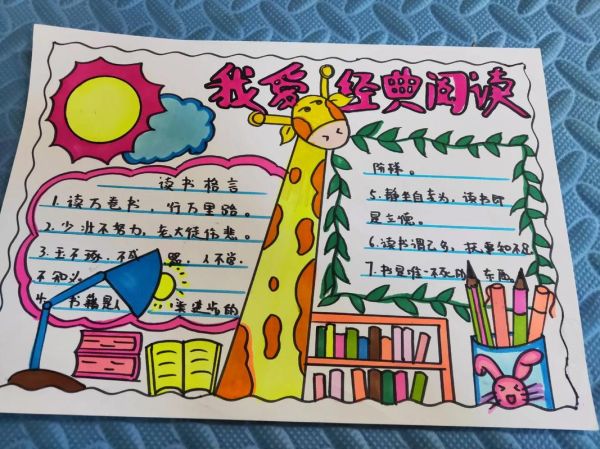 我爱经典阅读
读书格言
1.读万卷书，行万里路。
2.少壮不努力，老大徒伤悲。
3.玉不琢，不成器，人不学，
不知义。
4.书籍是人类进步的
阶梯。
5.静坐自为，读书即
是立德。
6.读书谓已多，抚事知不足
7.书是唯一不死的东西